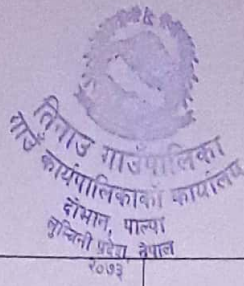 तिनाउ गाउँपालिका
गाउँ कार्यपालिकाको कार्यालय
दोभान, पाल्पा
लुम्बिनी प्रदेश, नेपाल
२०७३